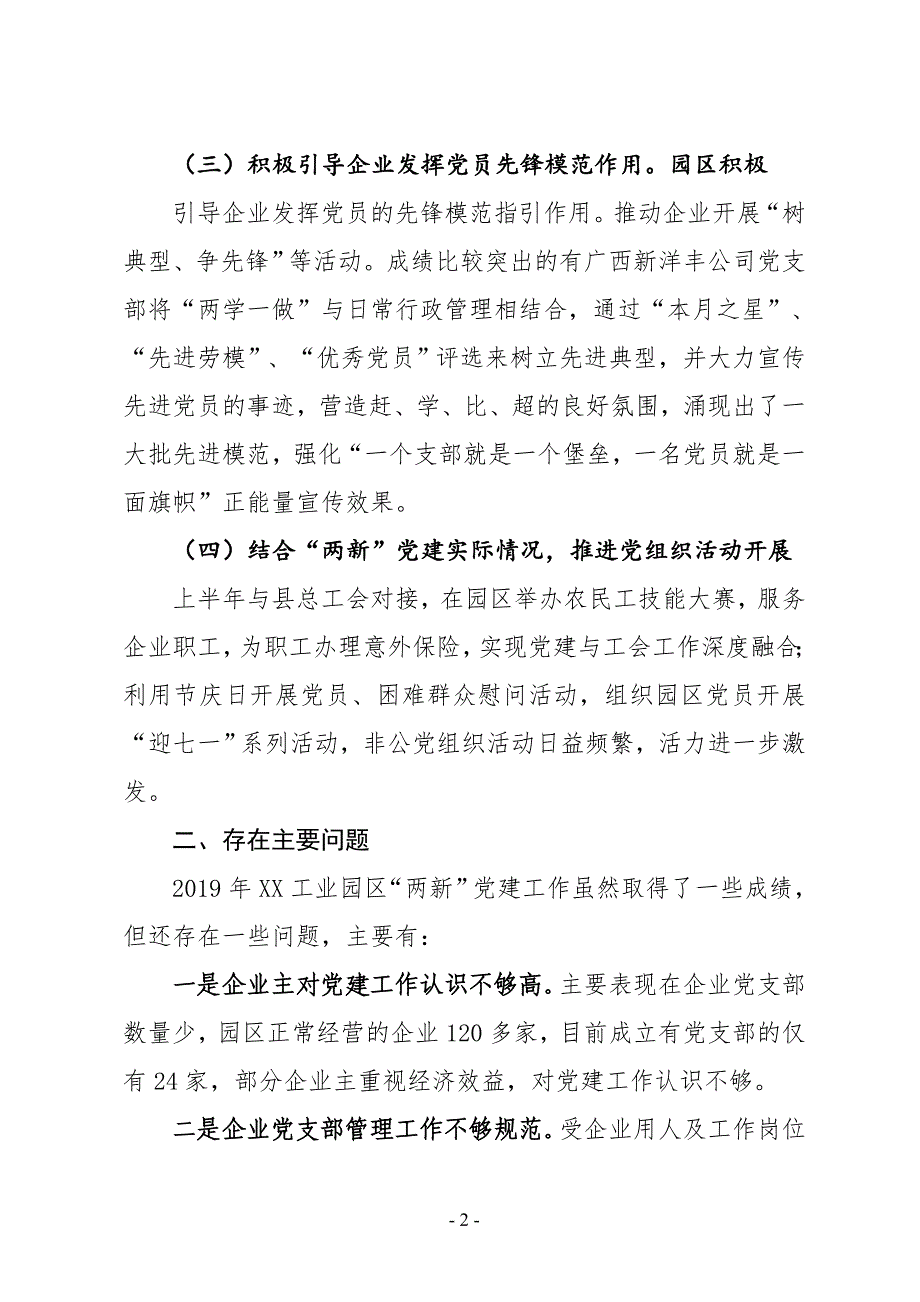 （三）积极引导企业发挥党员先锋模范作用。园区积极
引导企业发挥党员的先锋模范指引作用。推动企业开展“树
典型、争先锋”等活动。成绩比较突出的有广西新洋丰公司党支
部将“两学一做”与日常行政管理相结合，通过“本月之星”、
“先进劳模”、“优秀党员”评选来树立先进典型，并大力宣传
先进党员的事迹，营造赶、学、比、超的良好氛围，涌现出了一
大批先进模范，强化“一个支部就是一个堡垒，一名党员就是一
面旗帜”正能量宣传效果。
（四）结合“两新”党建实际情况，推进党组织活动开展
上半年与县总工会对接，在园区举办农民工技能大赛，服务
企业职工，为职工办理意外保险，实现党建与工会工作深度融合；
利用节庆日开展党员、困难群众慰问活动，组织园区党员开展
“迎七一”系列活动，非公党组织活动日益频繁，活力进一步激
发。
二、存在主要问题
2019 年 XX 工业园区“两新”党建工作虽然取得了一些成绩，
但还存在一些问题，主要有：
一是企业主对党建工作认识不够高。主要表现在企业党支部
数量少，园区正常经营的企业 120 多家，目前成立有党支部的仅
有 24 家，部分企业主重视经济效益，对党建工作认识不够。
二是企业党支部管理工作不够规范。受企业用人及工作岗位
- 2 -